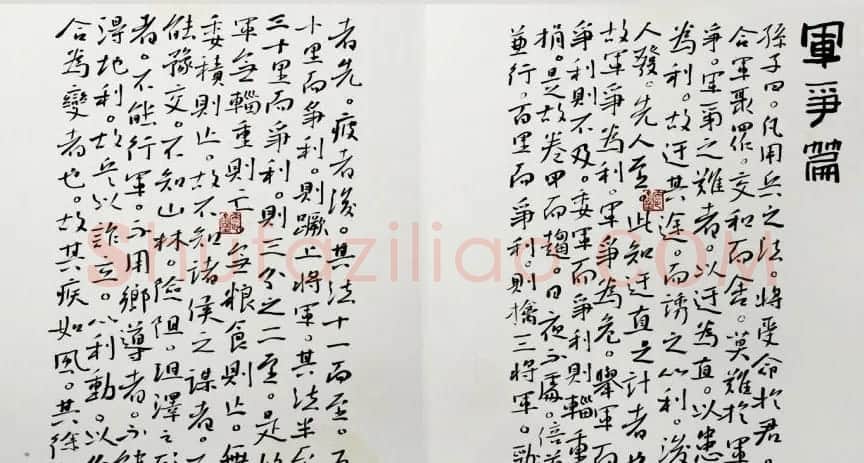 軍爭篇
孫子曰。凡用兵之法。將受命於君。
合軍聚眾。交和而舍。莫難於軍
爭。軍爭之難者。以迂為直。以患
為利。故迂其途。而誘之以利。後
人發。先人至。此知迂直之計者也
故軍爭為利。軍爭為危。舉軍而
爭利則不及。委軍而爭利則輜重
捐。是故卷甲而趨。日夜不處。倍道
兼行。百里而爭利。則擒三將軍。勁
者先。疲者後。其法十一而至。五
十里而爭利。則蹶上將軍。其法半至
三十里而爭利。則三分之二至。是故
軍無輜重則亡。無糧食則亡。無
委積則亡。故不知諸侯之謀者。不
能豫交。不知山林。險阻。沮澤之形
者。不能行軍。不用鄉導者。不能
得地利。故兵以詐立。以利動。以分
合為變者也。故其疾如風。其徐
Shufaziliao.COM